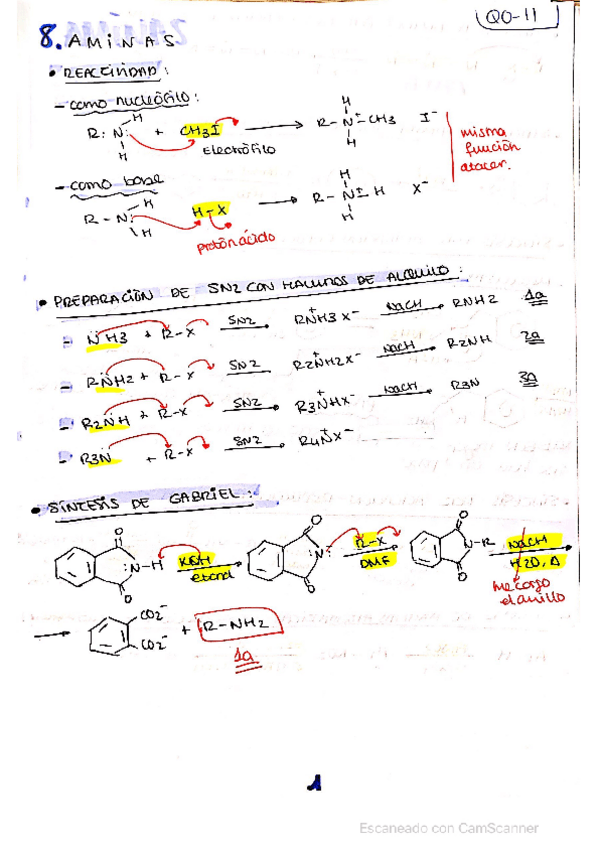 QO-11
8. AMINAS
• REACTIVIDAD:
- como nucleófilo:
R: N: H H + CH3I → R-N±CH3 H H I⁻
Electrófilo
misma
función
atacar.
- como base
R-N: H H H-X → R-N±H H H X⁻
protón ácido
• PREPARACIÓN DE SN2 CON HALUROS DE ALQUILO:
- NH3 + R-X SN2→ RNH3X⁻ NaOH→ RNH2 1a
- RNH2 + R-X SN2→ R2NH2X⁻ NaOH→ R2NH 2a
- R2NH + R-X SN2→ R3NHX⁻ NaOH→ R3N 3a
- R3N + R-X SN2→ R4NX⁻
• SÍNTESIS DE GABRIEL:
O N-H O KOH etanol → O N: O R-X DMF → O N-R O NaOH H2O, Δ →
me cargo
el anillo
→ CO2⁻ CO2⁻ + R-NH2
1a
1
Escaneado con CamScanner